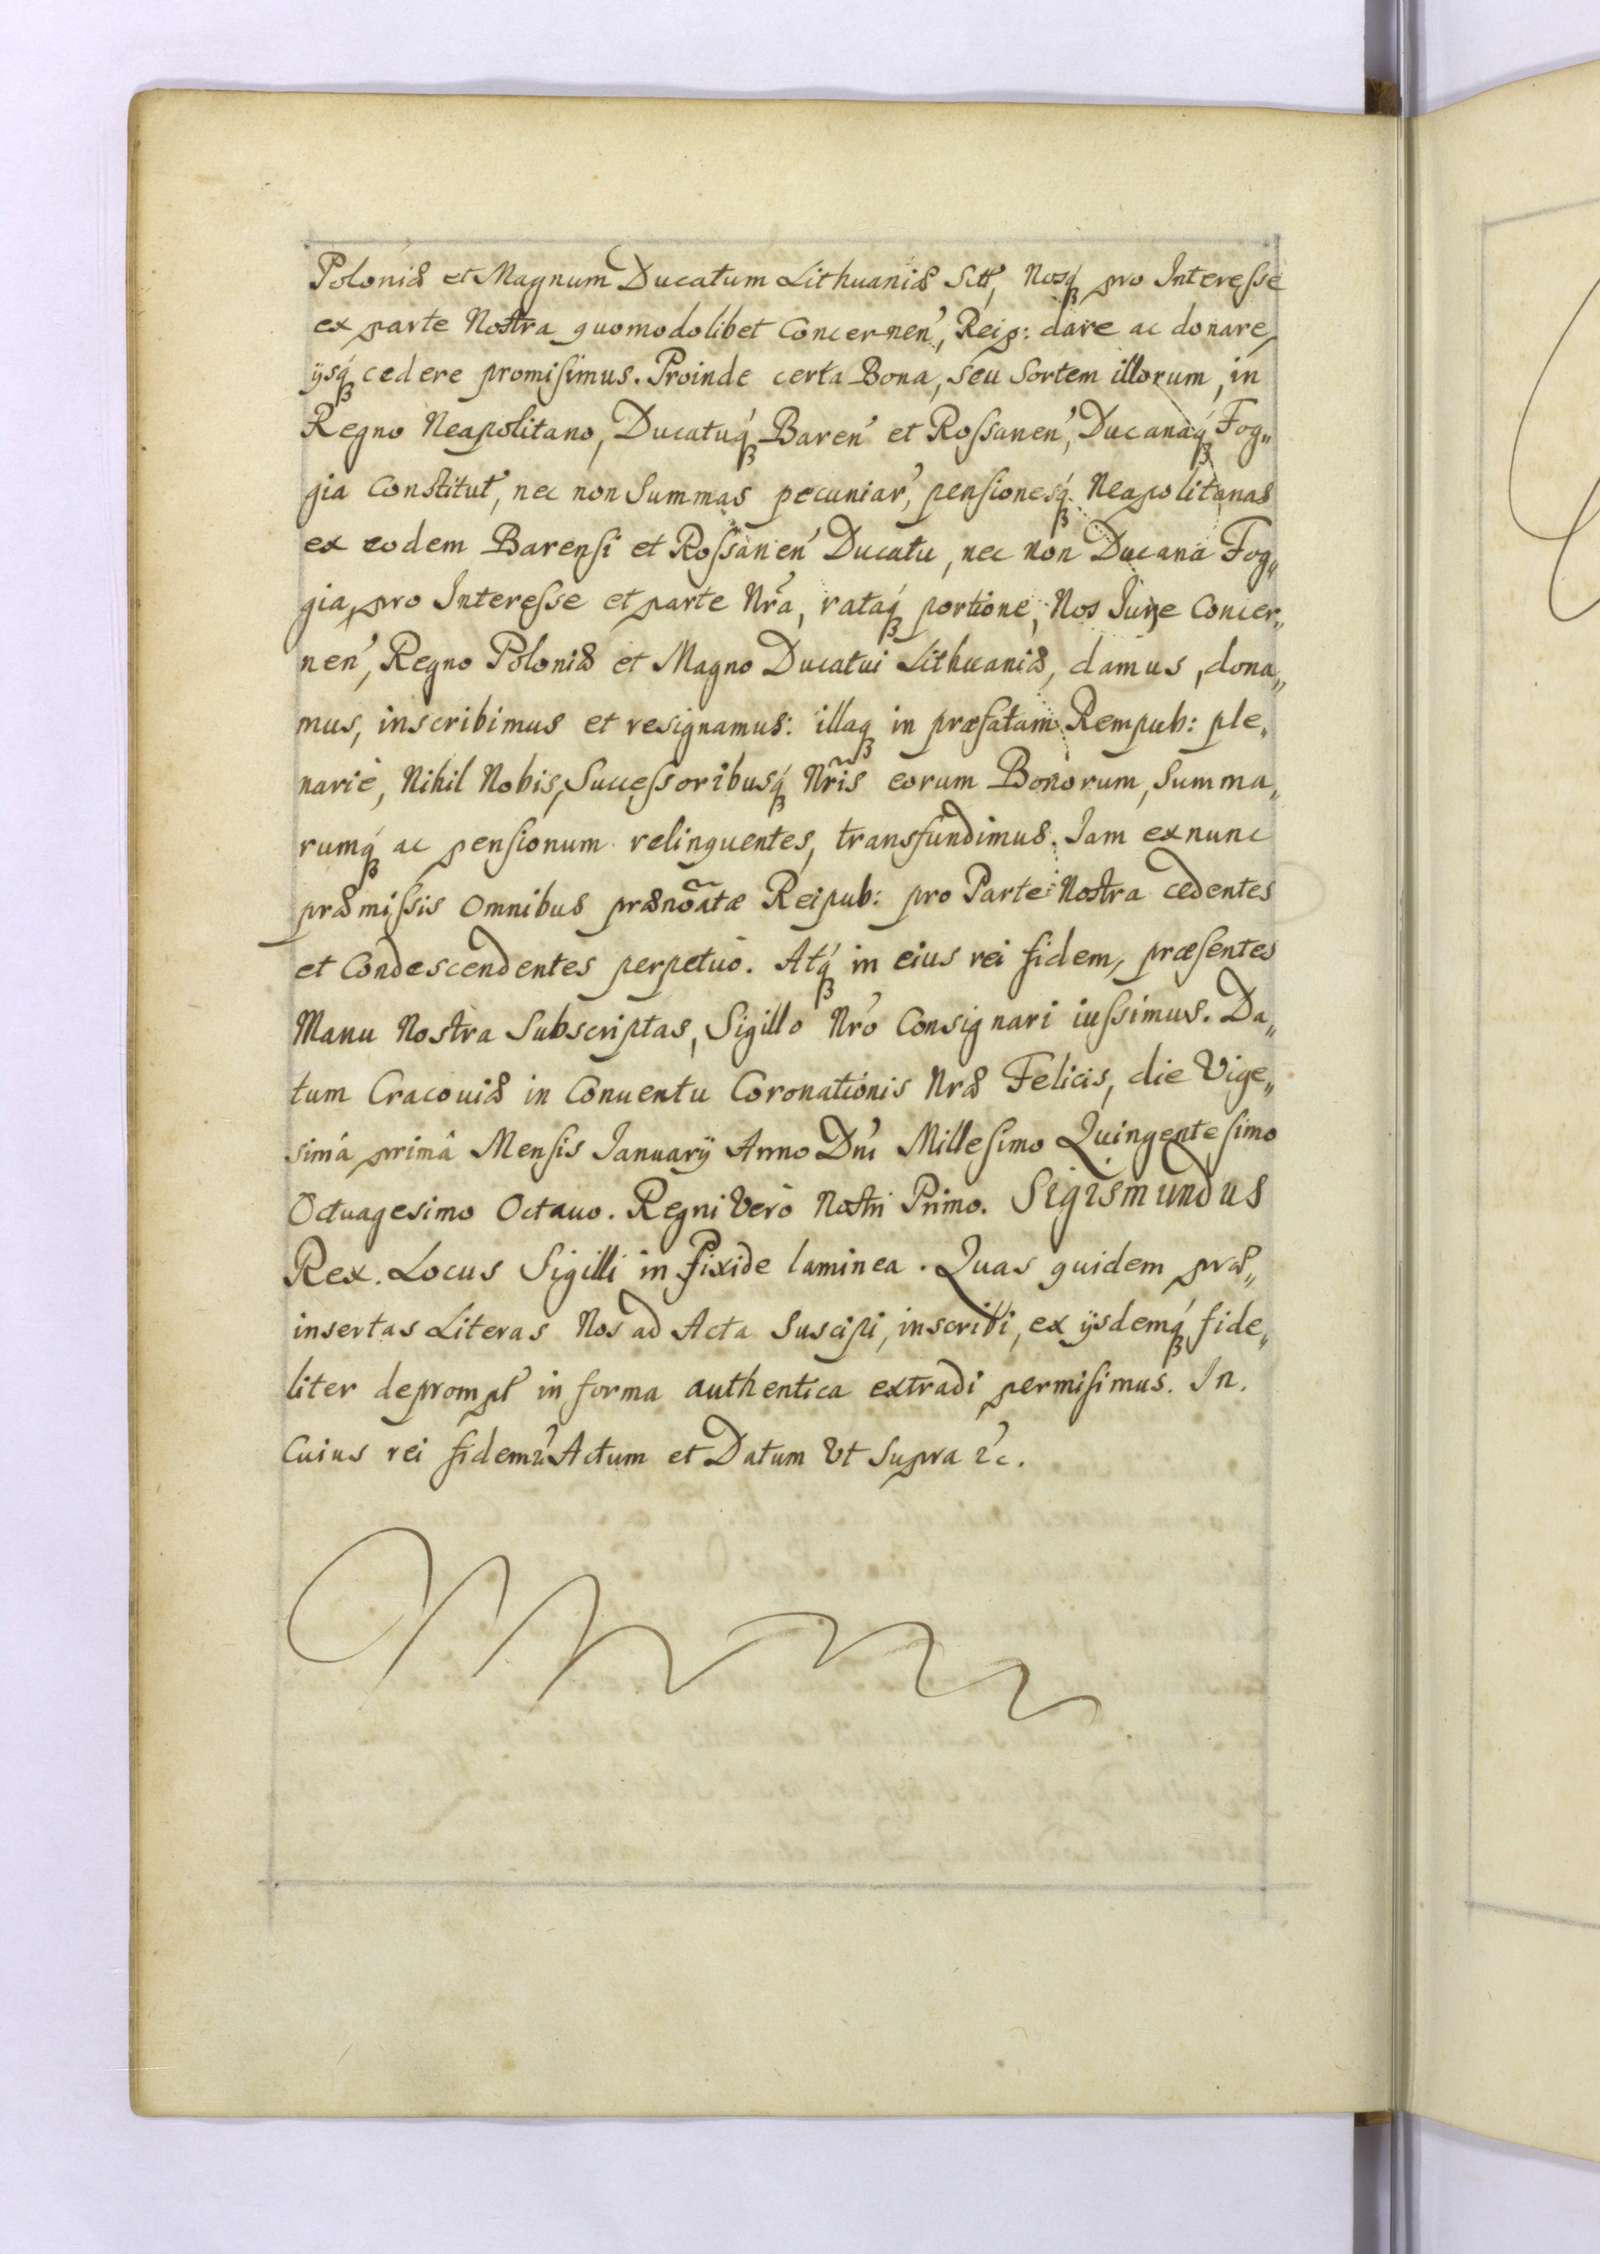 Poloniæ et Magnum Ducatum Lithuaniæ sitt, Nosq́ pro Interesse
ex parte Nostra quomodolibet concernen', Reip: dare ac donare,
ijsq́ cedere promisimus. Proinde certa Bona, seu Sortem illorum, in
Regno Neapolitano, Ducatuq́ Baren' et Rossanen', Ducanaq́ Fog„
gia Constitut', nec non Summas pecuniar', pensionesq́ Neapolitanas
ex eodem Barensi et Rossanen' Ducatu, nec non Ducana Fog„
gia, pro Interesse et parte Nr̃a, rataq́ portione, Nos Jure Concer„
nen', Regno Poloniæ et Magno Ducatui Lithuaniæ, damus, dona„
mus, inscribimus et resignamus: illaq in præfatam Rempub: ple„
nariè, Nihil Nobis, Successoribusq́ Nr̃is eorum Bonorum, Summa„
rumq́ ac pensionum relinquentes, transfundimus. Iam ex nunc
præmissis Omnibus prænõatæ Reipub: pro Parte Nostra cedentes
et Condescendentes perpetuò. Atq́ in eius rei fidem, præsentes
Manu Nostra Subscriptas, Sigillo Nr̃o Consignari iussimus. Da„
tum Cracouiæ in Conuentu Coronationis Nræ Felicis, die Vige„
simá primâ Mensis Ianuarij Anno Dni Millesimo Quingentesimo
Octuagesimo Octauo. Regni Verò Nostri Primo. Sigismundus
Rex. Locus Sigilli in Pixide laminea. Quas quidem præ„
insertas Literas Nos ad Acta Suscipi, inscribi, ex ijsdemq́ fide„
liter deprompt' in forma authentica extradi permisimus. In
Cuius rei fidem &' Actum et Datum Vt Supra &c.